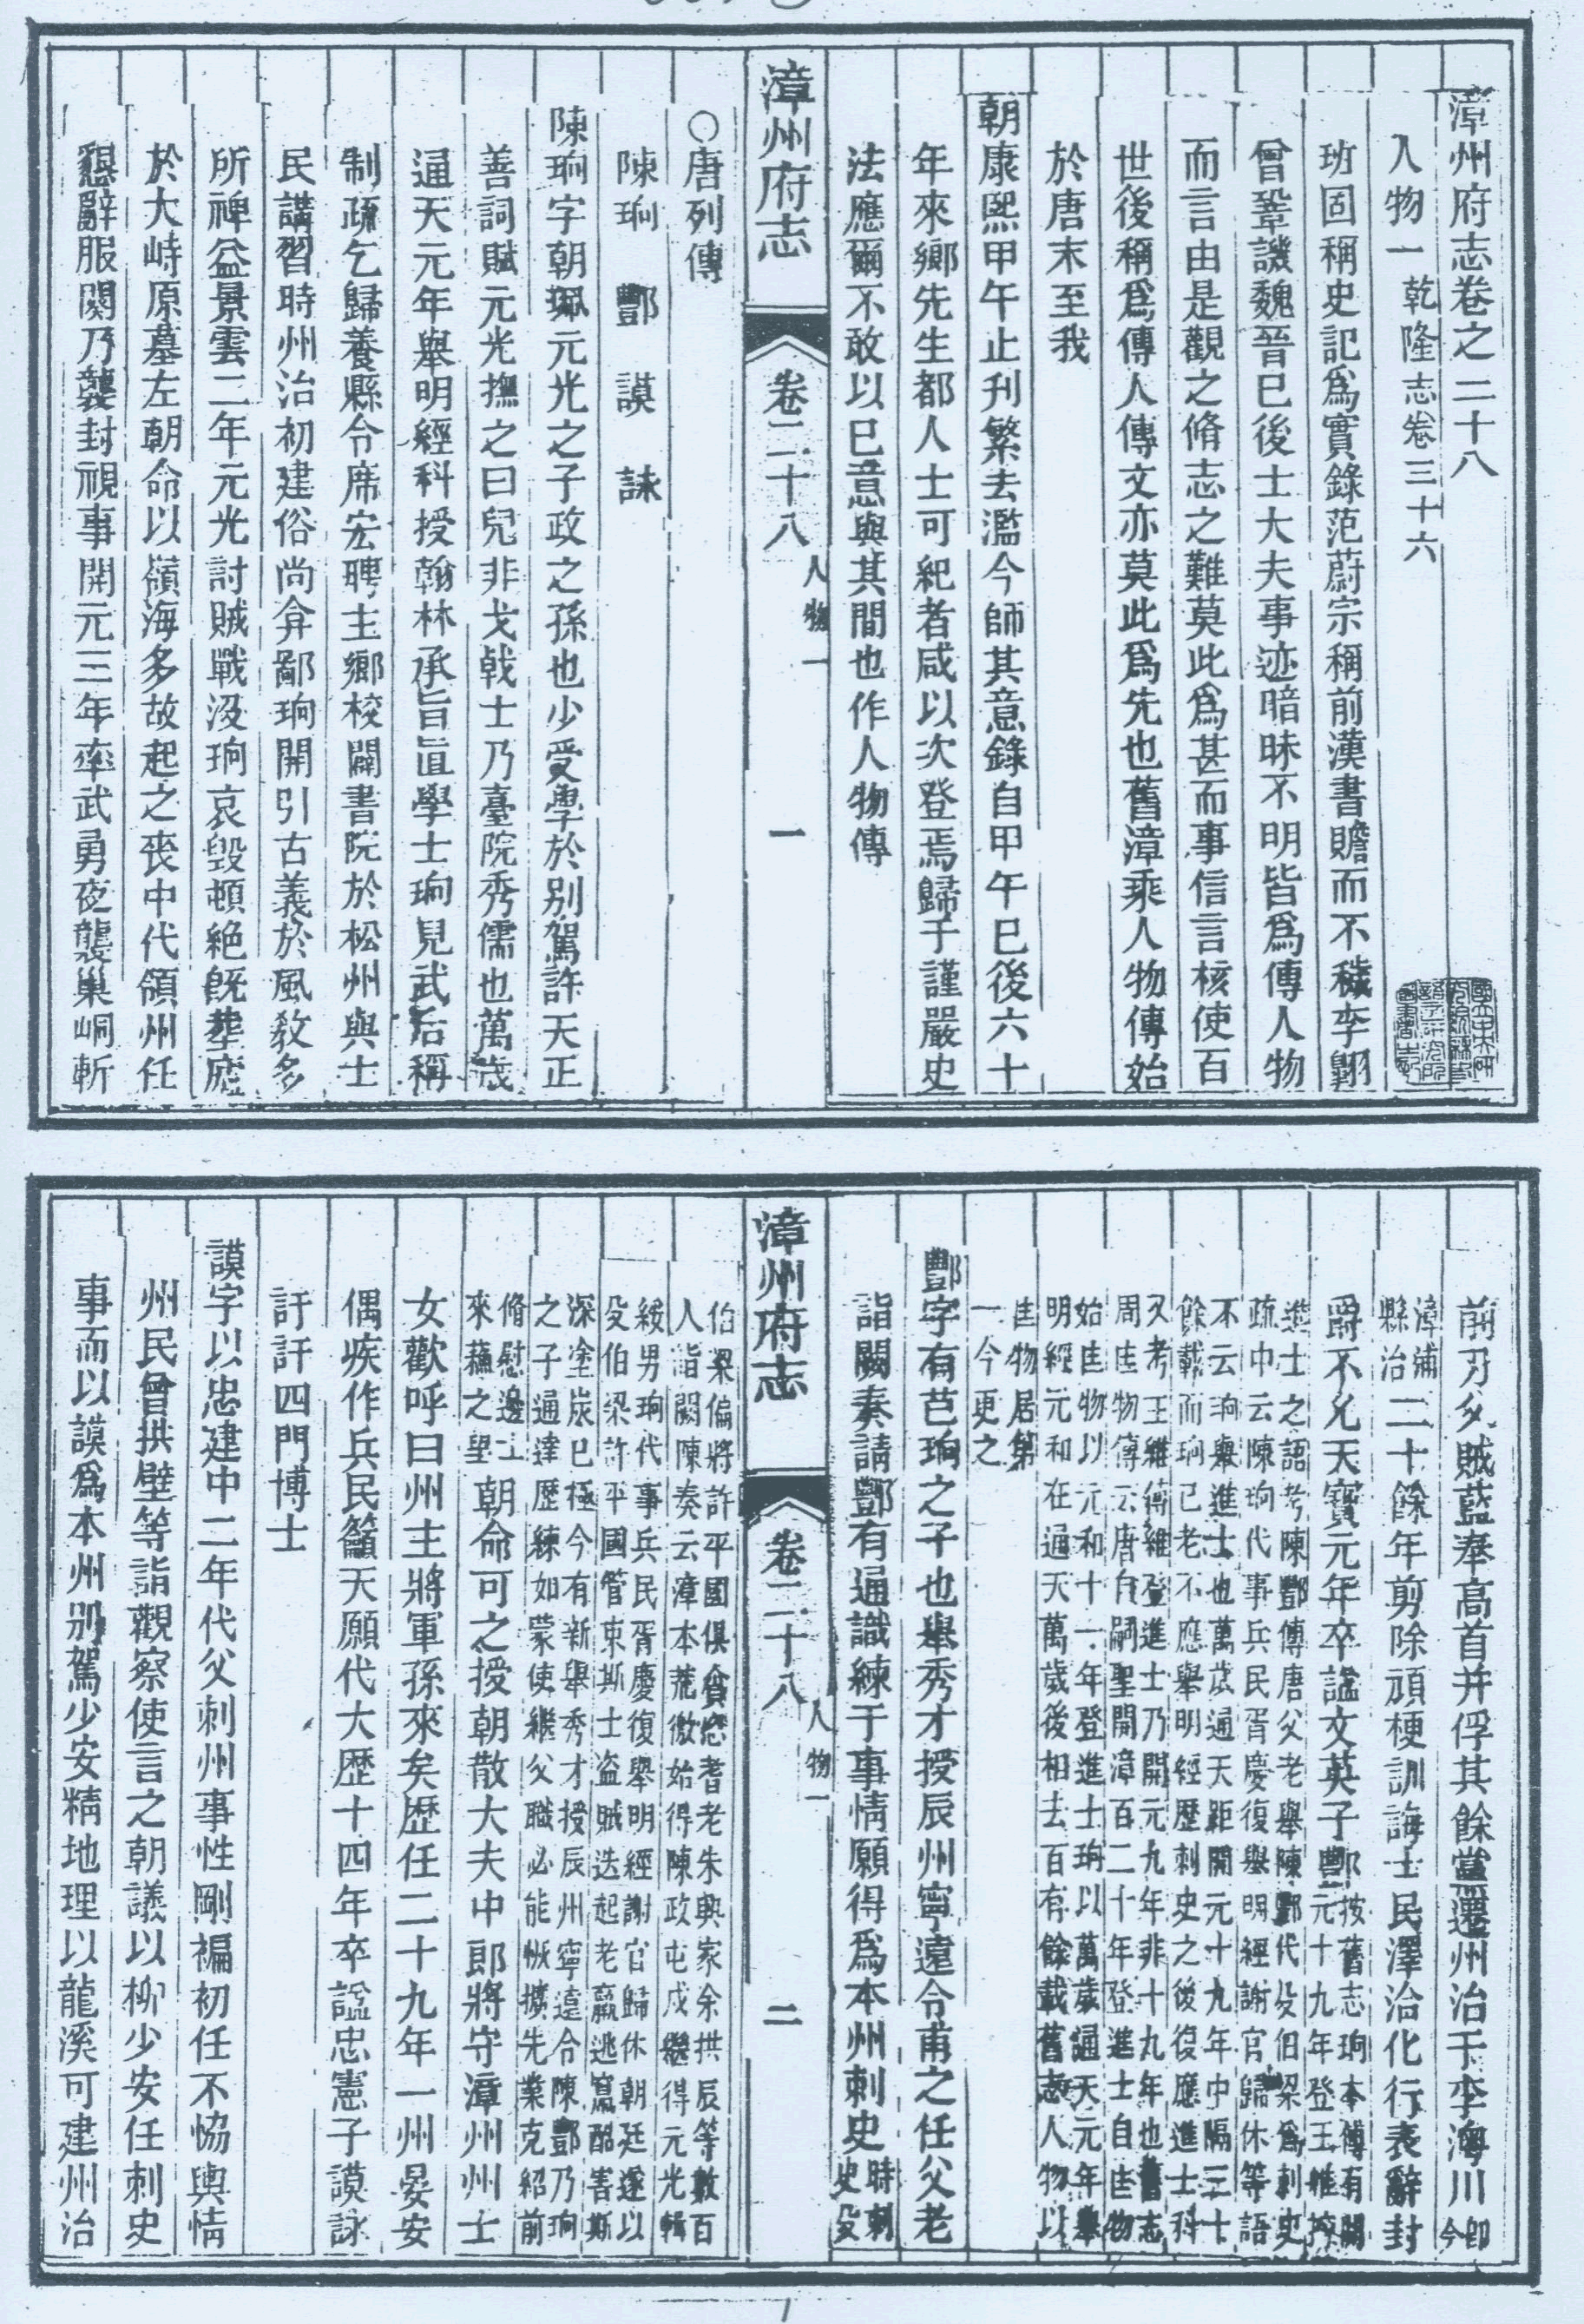 漳州府志卷之二十八
人物一 乾隆志卷三十六
班固稱史記爲實錄范蔚宗稱前漢書贍而不穢李
曾鞏譏魏晉已後士大夫事迹暗昧不明皆爲傳人物
而言由是觀之脩志之難莫此爲甚而事信言核使百
世後稱爲傳人傳文亦莫此爲先也舊漳乘人物傳始
於唐末至我
朝康熙甲午止刊繁去濫今師其意錄自甲午已後六十
年來鄉先生都人士可紀者咸以次登焉歸于謹嚴史
法應爾不敢以已意與其間也作人物傳
漳州府志 卷二十八 人物一 一
○唐列傳
陳珦 酆 謨 詠
陳珦字朝珮元光之子政之孫也少受學於别駕許天正
善詞賦元光撫之曰兒非戈戟士乃臺院秀儒也萬歲
通天元年舉明經科授翰林承旨直學士珦見武后稱
制疏乞歸養縣令席宏聘主鄉校闢書院於松州與士
民講習時州治初建俗尚弇鄙珦開引古義於風教多
所裨益景雲二年元光討賊戰没珦哀毀頓絶旣葬廬
於大峙原墓左朝命以嶺海多故起之喪中代領州任
懇辭服闋乃襲封視事開元三年率武勇夜襲巢峒斬
前刃父賊藍奉高首并俘其餘黨遷州治于李澳川 卽今
漳浦縣治 二十餘年剪除頑梗訓誨士民澤洽化行表辭封
爵不允天寶元年卒謚文英子酆 按舊志珦本傳有開元十九年登王維榜
進士之語考陳酆傳唐父老舉陳酆代父伯梁爲刺史
疏中云陳珦代事兵民胥慶復舉明經謝官歸休等語
不云珦舉進士也萬歲通天距開元十九年中隔三十
餘載而珦已老不應舉明經歷刺史之後復應進士科
又考王維傳維登進士乃開元九年非十九年也舊志
周匡物傳云唐自嗣聖開漳百二十年登進士自匡物
始匡物以元和十一年登進士珦以萬歲通天元年舉
明經元和在通天萬歲後相去百有餘載舊志人物以
匡物居第
一今更之
酆字有芑珦之子也舉秀才授辰州寧遠令甫之任父老
詣闕奏請酆有通識練于事情願得爲本州刺史 時刺史殁
漳州府志 卷二十八 人物一 二
伯梁偏將許平國俱貪悠耆老朱興家余拱辰等數百
人詣闕陳奏云漳本荒徼始得陳政屯戍繼得元光輯
綏男珦代事兵民胥慶復舉明經謝官歸休朝廷遂以
殁伯梁許平國管束斯士盗賊迭起老羸逃竄酷害斯
深塗炭已極今有新舉秀才授辰州寧遠令陳酆乃珦
之子通達歷練如蒙使繼父職必能恢擴先業克紹前
脩慰邊士
來蘇之望 朝命可之授朝散大夫中郎將守漳州州士
女歡呼曰州主將軍孫來矣歷任二十九年一州晏安
偶疾作兵民籲天願代大歷十四年卒謚忠憲子謨詠
訏訐四門博士
謨字以忠建中二年代父刺州事性剛褊初任不恊輿情
州民曾拱璧等詣觀察使言之朝議以柳少安任刺史
事而以謨爲本州别駕少安精地理以龍溪可建州治